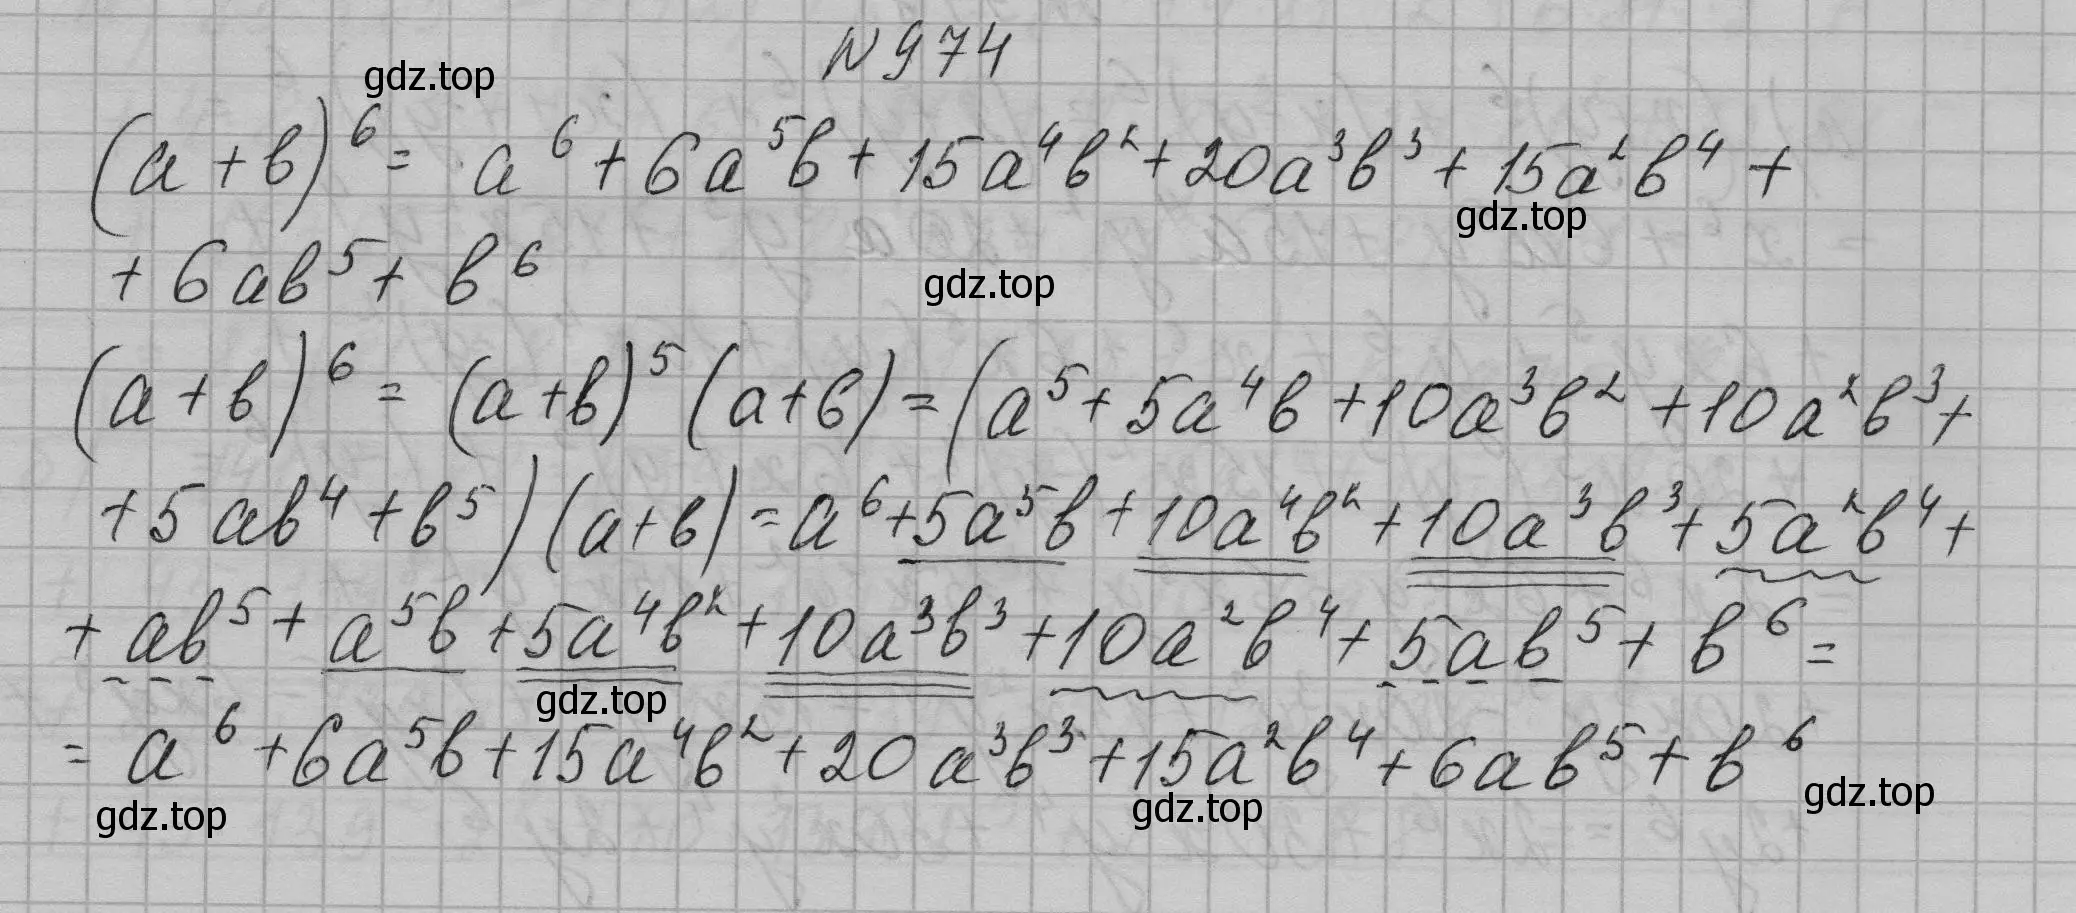 N 974
gdz.top
(a+b)⁶ = a⁶ + 6a⁵b + 15a⁴b² + 20a³b³ + 15a²b⁴ +
gdz.top
+ 6ab⁵ + b⁶
gdz.top
(a+b)⁶ = (a+b)⁵ (a+b) = (a⁵ + 5a⁴b + 10a³b² + 10a²b³ +
+ 5ab⁴ + b⁵) (a+b) = a⁶ + 5a⁵b + 10a⁴b² + 10a³b³ + 5a²b⁴ +
+ ab⁵ + a⁵b + 5a⁴b² + 10a³b³ + 10a²b⁴ + 5ab⁵ + b⁶ =
gdz.top
= a⁶ + 6a⁵b + 15a⁴b² + 20a³b³ + 15a²b⁴ + 6ab⁵ + b⁶
gdz.top
gdz.top
gdz.top